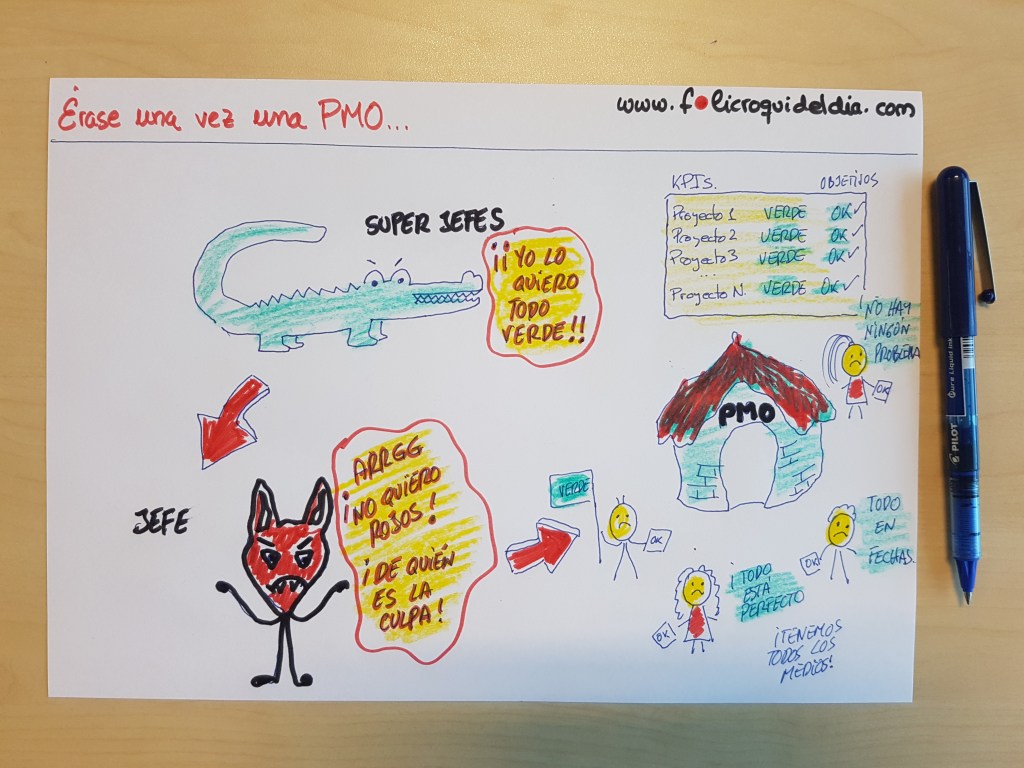 Érase una vez una PMO...
www.folicroquideldia.com
SUPER JEFES
¡¡YO LO
QUIERO
TODO
VERDE!!
KPIs. OBJETIVOS
Proyecto 1 VERDE OK✓
Proyecto 2 VERDE OK✓
Proyecto 3 VERDE OK✓
...
Proyecto N. VERDE OK✓
¡NO HAY
NINGÚN
PROBLEMA
OK
PMO
JEFE
ARRGG
¡NO QUIERO
ROJOS!
¡DE QUIÉN
ES LA
CULPA!
VERDE
OK
TODO
EN
FECHAS.
OK
¡TODO
ESTÁ
PERFECTO
OK
¡TENEMOS
TODOS LOS
MEDIOS!
PILOT
Pure Liquid Ink